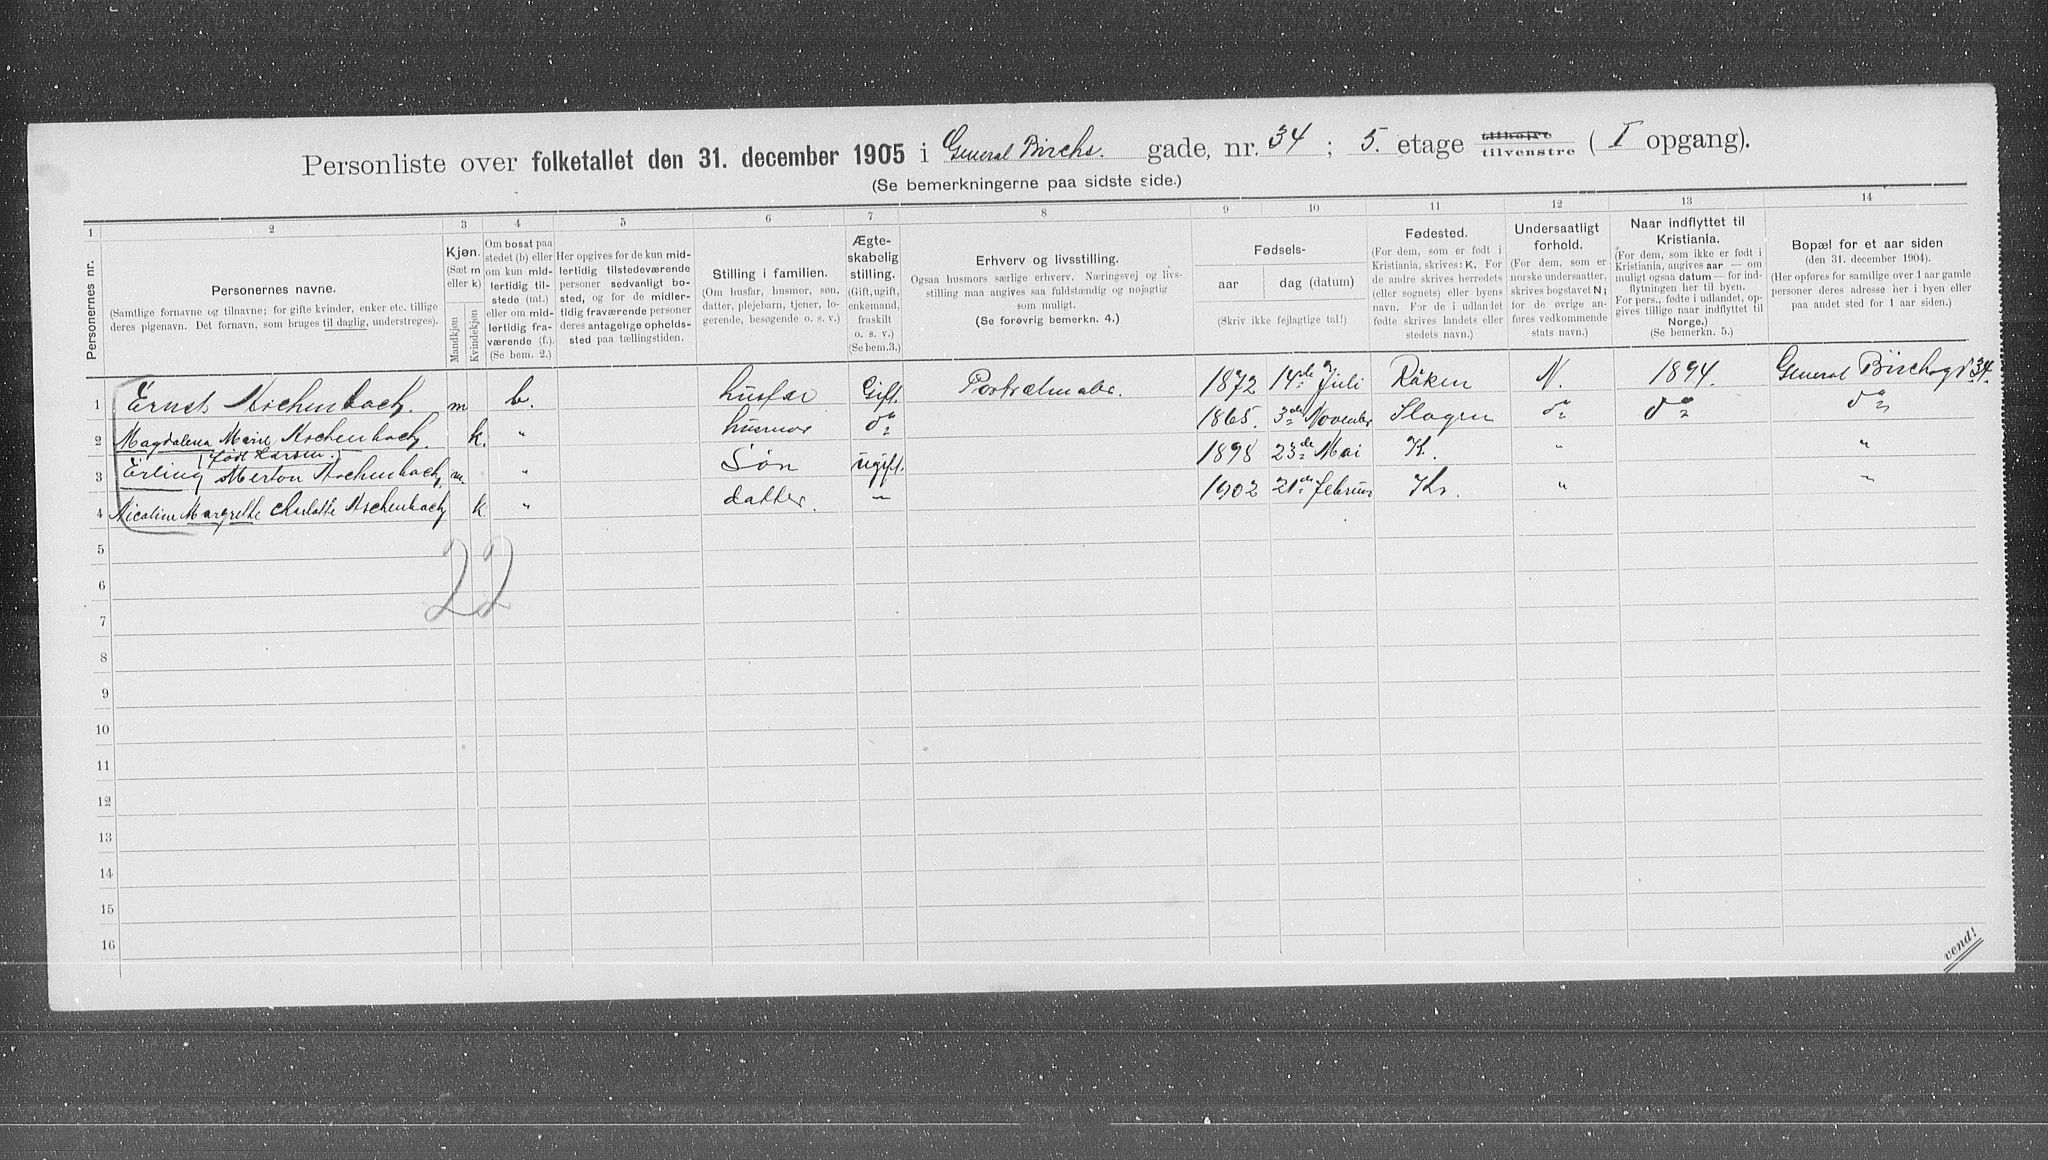 Personliste over folketallet den 31. december 1905 i General Birchs. gade, nr. 34 ; 5. etage tilhøire tilvenstre ( I opgang).
(Se bemerkningerne paa sidste side.)
1 2 3 4 5 6 7 8 9 10 11 12 13 14
Personernes nr.
Personernes navne.
(Samtlige fornavne og tilnavne; for gifte kvinder, enker etc. tillige deres pigenavn. Det fornavn, som bruges til daglig, understreges).
Kjøn.
(Sæt m eller k)
Mandkjøn
Kvindekjøn
Om bosat paa stedet (b) eller om kun midlertidig tilstede (mt.) eller om midlertidig fraværende (f.). (Se bem. 2.)
Her opgives for de kun midlertidig tilstedeværende personer sedvanligt bosted, og for de midlertidig fraværende personer deres antagelige opholdssted paa tællingstiden.
Stilling i familien.
(Om husfar, husmor, søn, datter, plejebarn, tjener, logerende, besøgende o. s. v.)
Ægteskabelig stilling.
(Gift, ugift, enkemand, fraskilt o. s. v.)
(Se bem.3.)
Erhverv og livsstilling.
Ogsaa husmors særlige erhverv. Næringsvej og livsstilling maa angives saa fuldstændig og nøjagtig som muligt.
(Se forøvrig bemerkn. 4.)
Fødsels-
aar
dag (datum)
(Skriv ikke fejlagtige tal!)
Fødested.
(For dem, som er født i Kristiania, skrives: K. For de andre skrives herredets (eller sognets) eller byens navn. For de i udlandet fødte skrives landets eller stedets navn.)
Undersaatligt forhold.
(For dem, som er norske undersaatter, skrives bogstavet N; for de øvrige anføres vedkommende stats navn.)
Naar indflyttet til Kristiania.
(For dem, som ikke er født i Kristiania, angives aar — om muligt ogsaa datum — for indflytningen her til byen. For pers., fødte i udlandet, opgives tillige naar indflyttet til Norge.)
(Se bemerkn. 5.)
Bopæl for et aar siden
(den 31. december 1904).
(Her opføres for samtlige over 1 aar gamle personer deres adresse her i byen eller paa andet sted for 1 aar siden.)
1 Ernst Aschenbach. m b. husfar Gift. Portrætmaler. 1872 14de Juli Röken N. 1894. General Birchsgd 34.
2 Magdalena Marie Aschenbach. k. " husmor do 1865. 3de November Slagen do do do
født Larsen.
3 Erling Merton Aschenbach. m " Søn ugift. 1898 23de Mai K. " "
4 Nicoline Margrethe Charlotte Aschenbach k " datter. " 1902 21de Februar Kr. " "
5
22
6
7
8
9
10
11
12
13
14
15
16
vend!